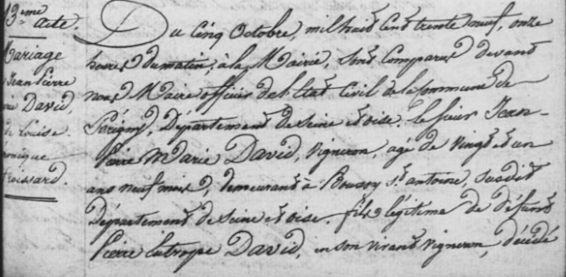 13ème
acte.
Mariage
Jean Pierre
Marie David,
Louise
Froissard.
Du cinq Octobre, mil huit cent trente neuf, onze
heures du matin, à la Mairie, sont comparus devant
nous Maire officier de l'état Civil de la Commune de
Périgny, Département de Seine et oise. le sieur Jean-
Pierre Marie David, vigneron, agé de vingt et un
ans neuf mois, demeurant à Boussy St antoine, susdit
Département de Seine et oise. fils légitime de défunt
Pierre Eutrope David, en son vivant vigneron, décédé